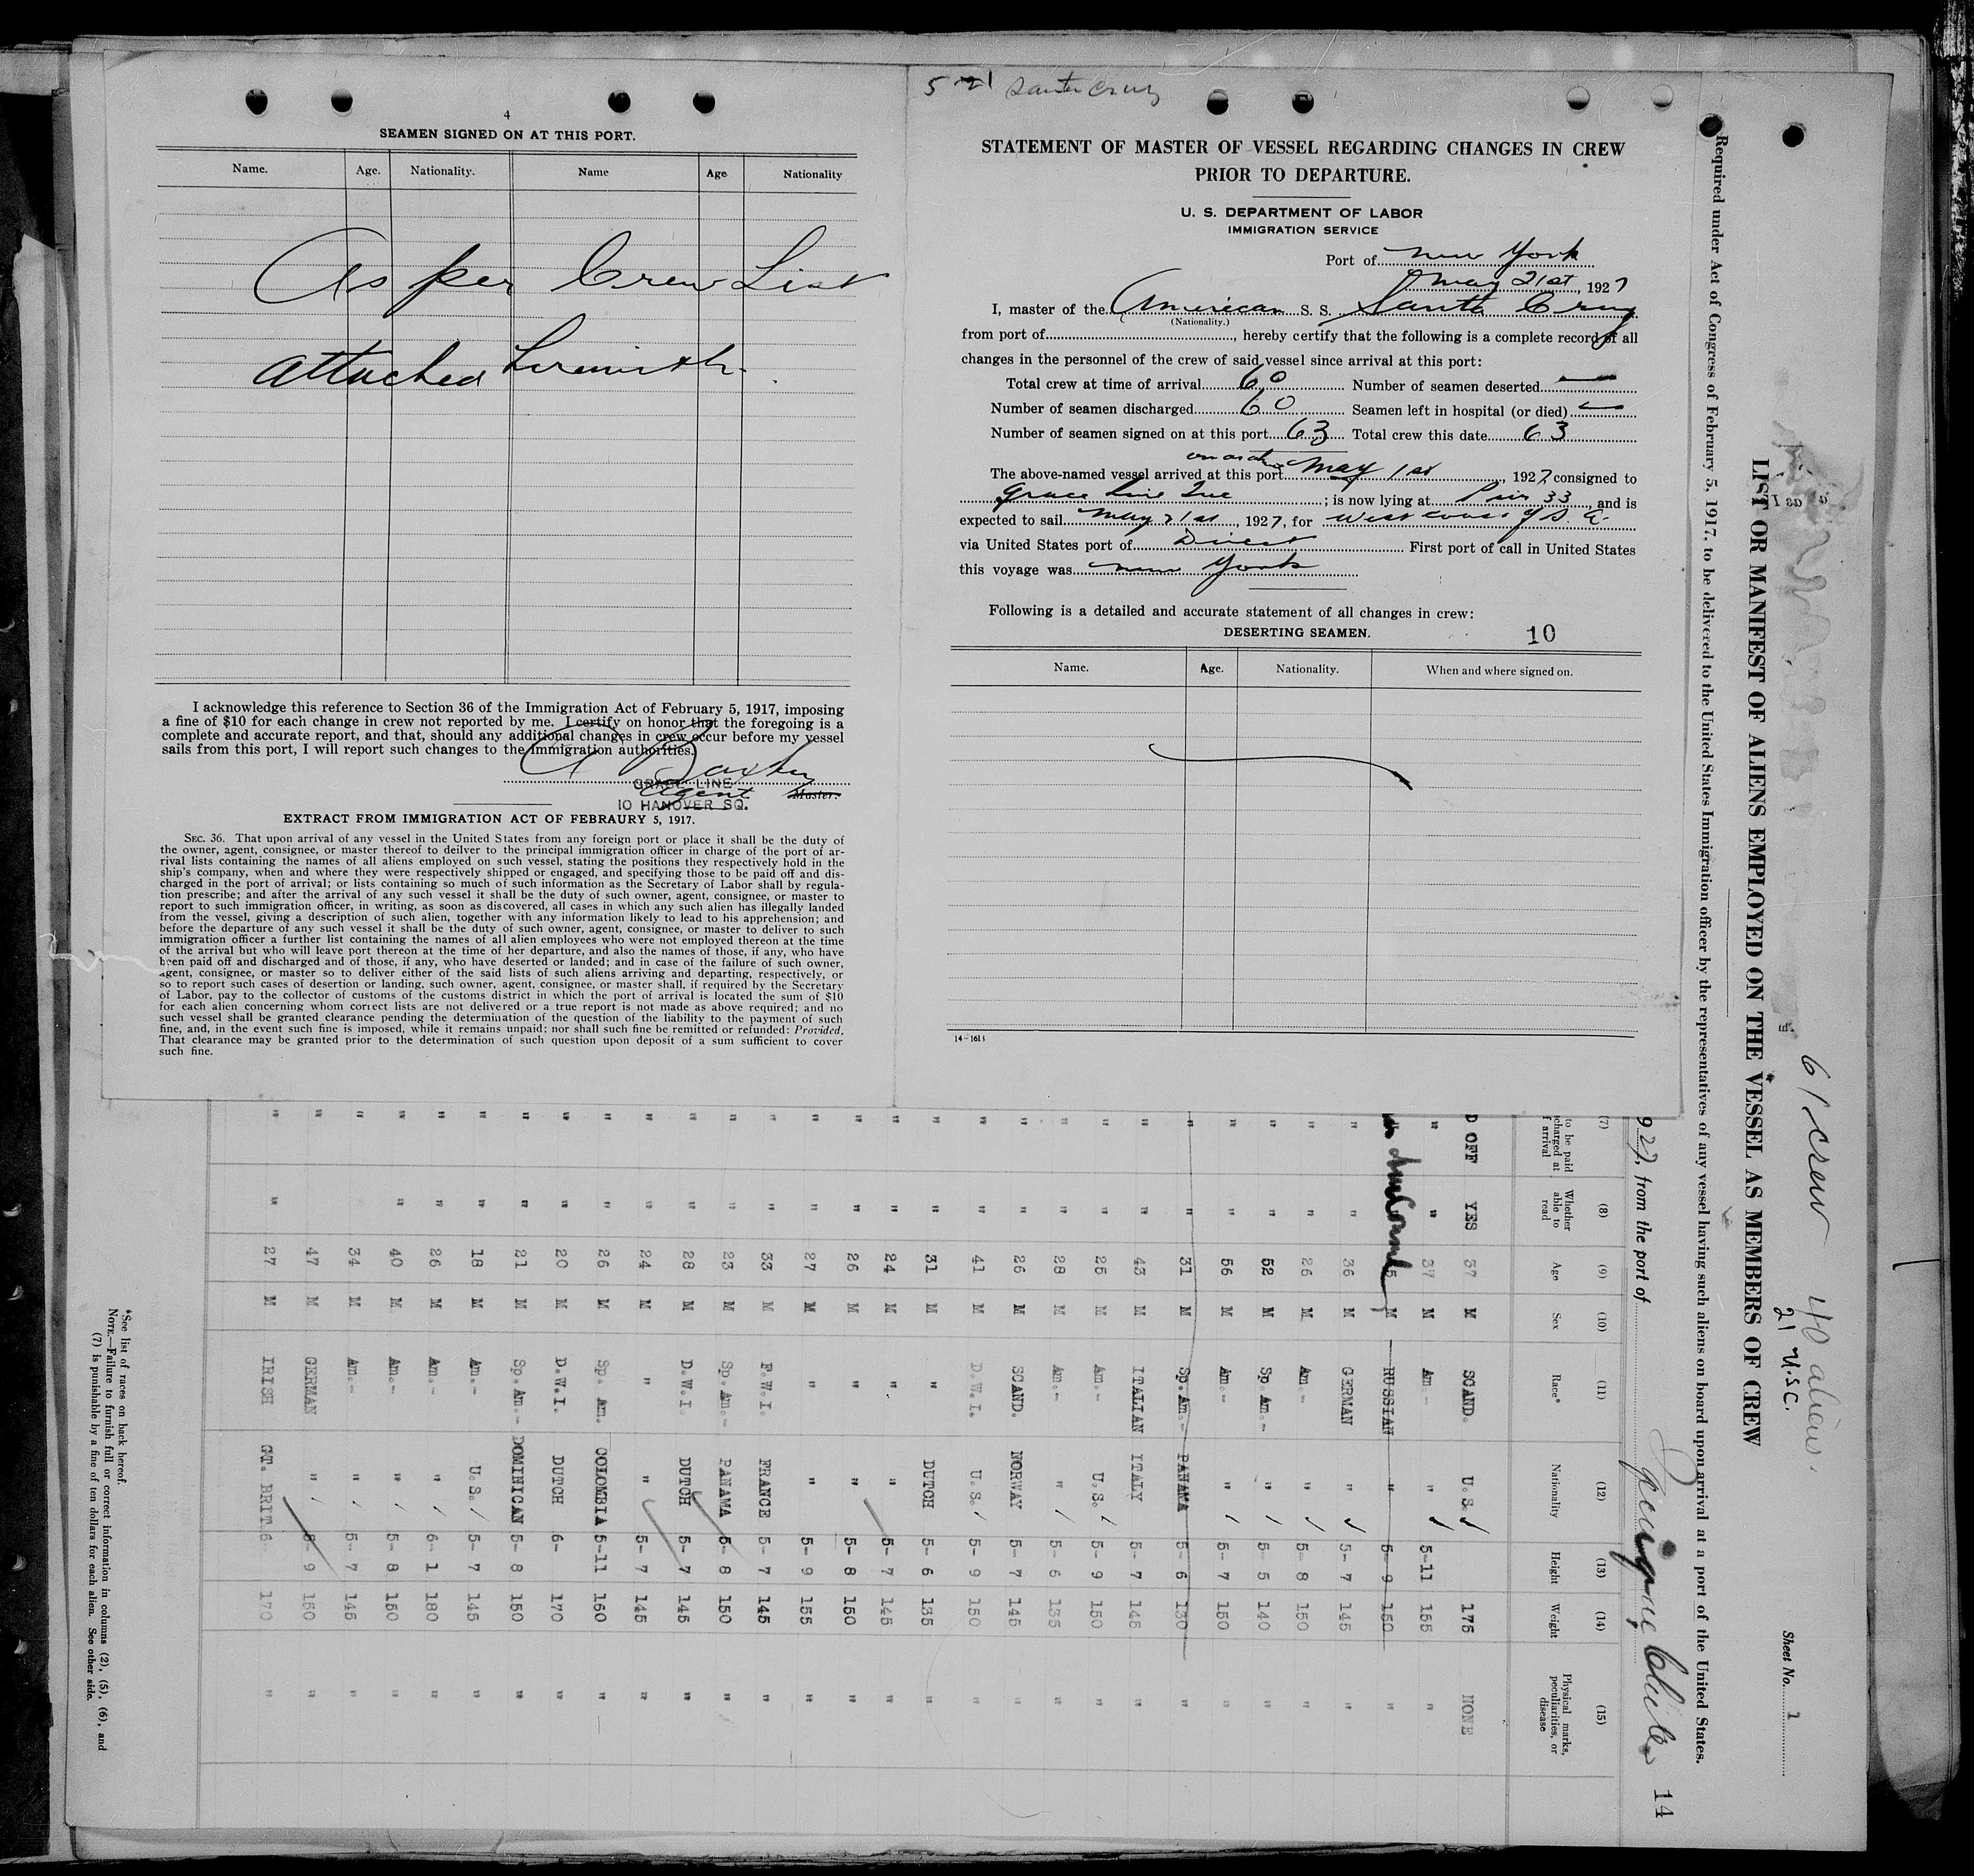 4
SEAMEN SIGNED ON AT THIS PORT.
Name. Age. Nationality. Name Age Nationality
As per Crew List
attached herewith.
I acknowledge this reference to Section 36 of the Immigration Act of February 5, 1917, imposing
a fine of $10 for each change in crew not reported by me. I certify on honor that the foregoing is a
complete and accurate report, and that, should any additional changes in crew occur before my vessel
sails from this port, I will report such changes to the immigration authorities.
A Baxter
GRACE LINE
Agent Master.
10 HANOVER SQ.
EXTRACT FROM IMMIGRATION ACT OF FEBRAURY 5, 1917.
SEC. 36. That upon arrival of any vessel in the United States from any foreign port or place it shall be the duty of
the owner, agent, consignee, or master thereof to deilver to the principal immigration officer in charge of the port of ar-
rival lists containing the names of all aliens employed on such vessel, stating the positions they respectively hold in the
ship's company, when and where they were respectively shipped or engaged, and specifying those to be paid off and dis-
charged in the port of arrival; or lists containing so much of such information as the Secretary of Labor shall by regula-
tion prescribe; and after the arrival of any such vessel it shall be the duty of such owner, agent, consignee, or master to
report to such immigration officer, in writing, as soon as discovered, all cases in which any such alien has illegally landed
from the vessel, giving a description of such alien, together with any information likely to lead to his apprehension; and
before the departure of any such vessel it shall be the duty of such owner, agent, consignee, or master to deliver to such
immigration officer a further list containing the names of all alien employees who were not employed thereon at the time
of the arrival but who will leave port thereon at the time of her departure, and also the names of those, if any, who have
been paid off and discharged and of those, if any, who have deserted or landed; and in case of the failure of such owner,
agent, consignee, or master so to deliver either of the said lists of such aliens arriving and departing, respectively, or
so to report such cases of desertion or landing, such owner, agent, consignee, or master shall, if required by the Secretary
of Labor, pay to the collector of customs of the customs district in which the port of arrival is located the sum of $10
for each alien concerning whom correct lists are not delivered or a true report is not made as above required; and no
such vessel shall be granted clearance pending the determination of the question of the liability to the payment of such
fine, and, in the event such fine is imposed, while it remains unpaid; nor shall such fine be remitted or refunded: Provided,
That clearance may be granted prior to the determination of such question upon deposit of a sum sufficient to cover
such fine.
5-21 Santa Cruz
STATEMENT OF MASTER OF VESSEL REGARDING CHANGES IN CREW
PRIOR TO DEPARTURE.
U. S. DEPARTMENT OF LABOR
IMMIGRATION SERVICE
Port of New York
May 21st, 1927
I, master of the American S. S. Santa Cruz
(Nationality.)
from port of, hereby certify that the following is a complete record of all
changes in the personnel of the crew of said vessel since arrival at this port:
Total crew at time of arrival 60 Number of seamen deserted —
Number of seamen discharged 60 Seamen left in hospital (or died) —
Number of seamen signed on at this port 63 Total crew this date 63
on or about
The above-named vessel arrived at this port May 1st, 1927, consigned to
Grace Line Inc; is now lying at Pier 33, and is
expected to sail May 21st, 1927, for West Coast of S. A.
via United States port of Direct First port of call in United States
this voyage was New York
Following is a detailed and accurate statement of all changes in crew:
DESERTING SEAMEN. 10
Name. Age. Nationality. When and where signed on.
14-1613
Sheet No. 1
61 crew 40 aliens.
21 U.S.C.
LIST OR MANIFEST OF ALIENS EMPLOYED ON THE VESSEL AS MEMBERS OF CREW
Required under Act of Congress of February 5, 1917, to be delivered to the United States Immigration officer by the representatives of any vessel having such aliens on board upon arrival at a port of the United States.
927, from the port of Iquique Chile 14
(7) (8) (9) (10) (11) (12) (13) (14) (15)
to be paid Whether Age Sex Race* Nationality Height Weight Physical marks,
charged at able to peculiarities, or
f arrival read disease
D OFF YES 37 M SCAND. U.S. 175 NONE
" " 37 M Am.- " 5-11 155 "
" 5 M RUSSIAN " 5-9 150 "
" " 36 M GERMAN " 5-7 145 "
" " 26 M Am.- " 5-8 150 "
" " 52 M Sp.Am.- " 5-5 140 "
" " 56 M Am.- " 5-7 150 "
" " 31 M Sp.Am.- PANAMA 5-6 130 "
" " 43 M ITALIAN ITALY 5-7 145 "
" " 25 M Am.- U.S. 5-9 150 "
" " 28 M Am.- " 5-6 135 "
" " 26 M SCAND. NORWAY 5-7 145 "
" " 41 M D.W.I. U.S. 5-9 150 "
" " 31 M " DUTCH 5-6 135 "
" " 24 M " " 5-7 145 "
" " 26 M " " 5-8 150 "
" " 27 M " " 5-9 155 "
" " 33 M F.W.I. FRANCE 5-7 145 "
" " 23 M Sp.Am.- PANAMA 5-8 150 "
" " 28 M D.W.I. DUTCH 5-7 145 "
" " 24 M " " 5-7 145 "
" " 26 M Sp. Am. COLOMBIA 5-11 160 "
" " 20 M D.W.I. DUTCH 6- 170 "
" " 21 M Sp.Am.- DOMINICAN 5-8 150 "
" " 18 M Am.- U.S. 5-7 145 "
" " 26 M Am.- " 6-1 180 "
" " 40 M Am.- " 5-8 150 "
" 34 M Am.- " 5-7 145 "
" 47 M GERMAN " 5-9 150 "
" " 27 M IRISH GT. BRIT. 6 170 "
*See list of races on back hereof.
NOTE.—Failure to furnish full or correct information in columns (2), (5), (6), and
(7) is punishable by a fine of ten dollars for each alien. See other side.